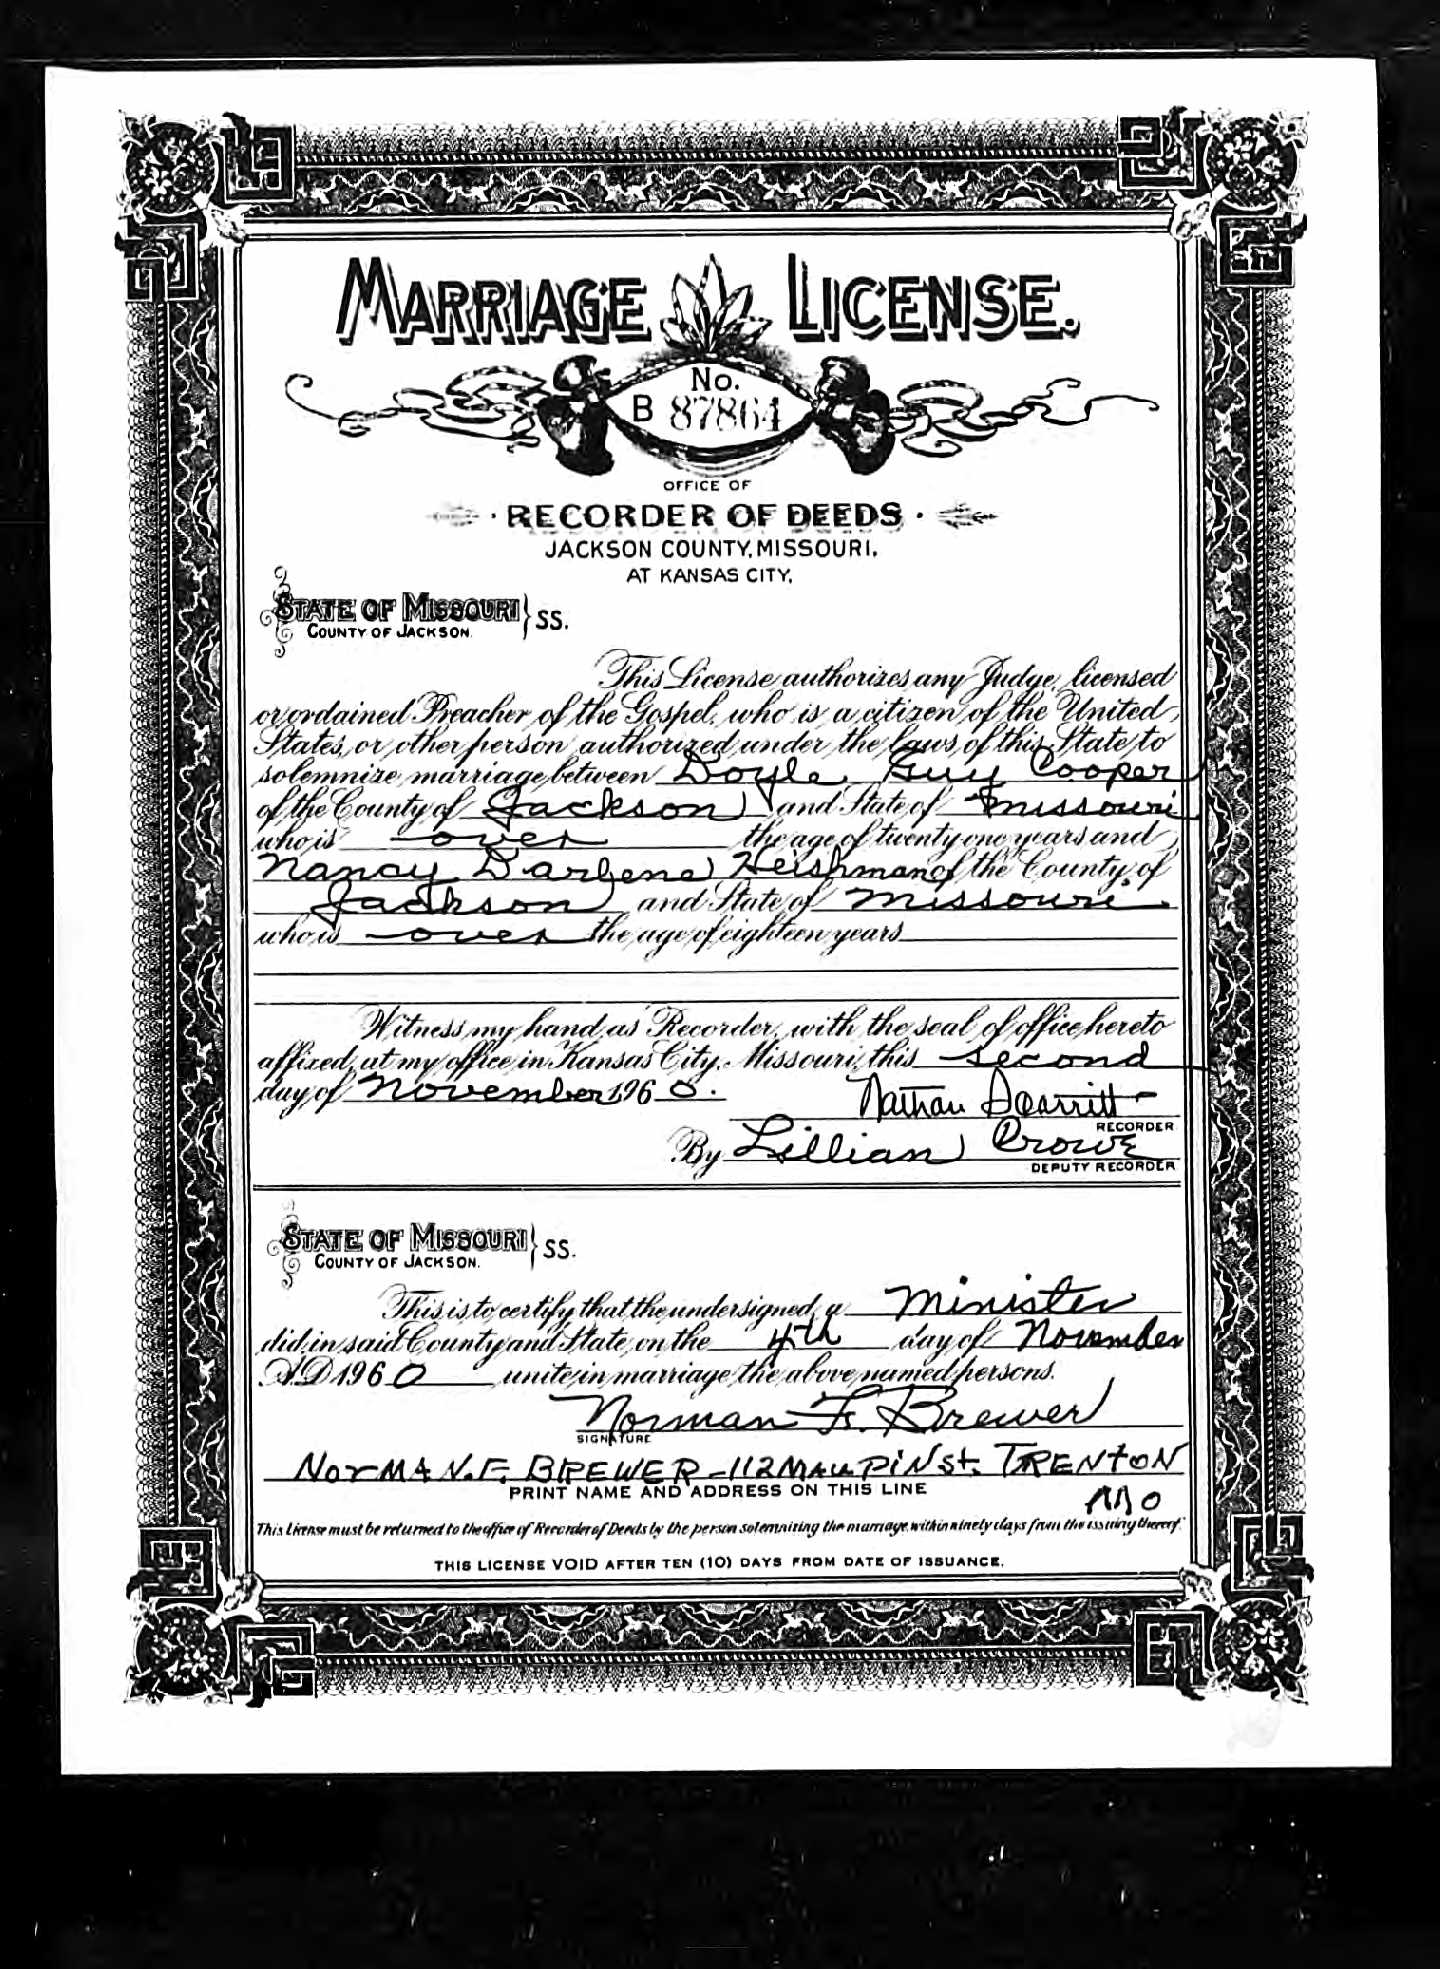 MARRIAGE LICENSE.
No.
B 87864
OFFICE OF
· RECORDER OF DEEDS ·
JACKSON COUNTY, MISSOURI,
AT KANSAS CITY,
STATE OF MISSOURI } SS.
COUNTY OF JACKSON.
This License authorizes any Judge, licensed
or ordained Preacher of the Gospel, who is a citizen of the United
States, or other person authorized under the laws of this State to
solemnize marriage between Doyle Guy Cooper
of the County of Jackson and State of Missouri
who is over the age of twenty one years and
Nancy Darlene Heishman of the County of
Jackson and State of Missouri
who is over the age of eighteen years
Witness my hand as Recorder, with the seal of office hereto
affixed, at my office in Kansas City, Missouri, this second
day of November 1960.
Nathan Scarritt
RECORDER
By Lillian Crowe
DEPUTY RECORDER
STATE OF MISSOURI } SS.
COUNTY OF JACKSON.
This is to certify that the undersigned, a Minister
did in said County and State, on the 4th day of November
A.D. 1960 unite in marriage the above named persons.
Norman F. Brewer
SIGNATURE
NORMAN.F. BREWER - 112 Maupin St. TRENTON
MO
PRINT NAME AND ADDRESS ON THIS LINE
This License must be returned to the office of Recorder of Deeds by the person solemnizing the marriage within ninety days from the issuing thereof.
THIS LICENSE VOID AFTER TEN (10) DAYS FROM DATE OF ISSUANCE.